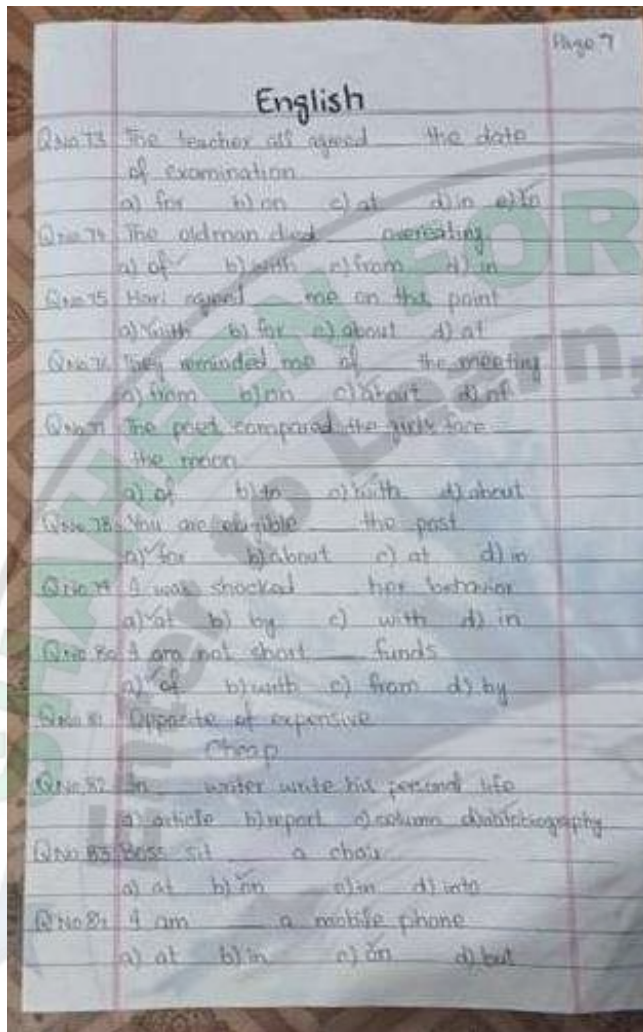 Page 7
English
Q No 73 The teacher all agreed __ the date
of examination
a) for b) on c) at d) in e) to
Q No 74 The oldman died __ overeating
a) of b) with c) from d) in
Q No 75 Hari agreed __ me on this point
a) with b) for c) about d) at
Q No 76 They reminded me of __ the meeting
a) from b) on c) about d) of
Q No 77 The poet compared the girl's face __
the moon
a) of b) to c) with d) about
Q No 78 You are eligible __ the post
a) for b) about c) at d) in
Q No 79 I was shocked __ her behavior
a) at b) by c) with d) in
Q No 80 I am not short __ funds
a) of b) with c) from d) by
Q No 81 Opposite of expensive
Cheap
Q No 82 In __ writer write his personal life
a) article b) report c) column d) autobiography
Q No 83 Boss sit __ a chair
a) at b) on c) in d) into
Q No 84 I am __ a mobile phone
a) at b) in c) on d) but
SHAHEEN FOR
Enter to Learn,